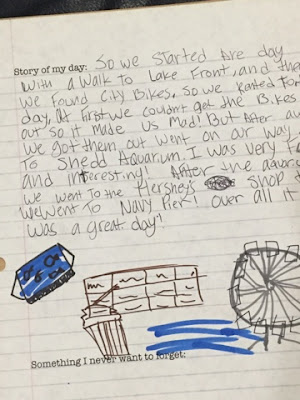 Story of my day: So we started are day
with a walk to Lake Front, and the
we found City Bikes, so we Rented for
day, At first we couldn't get the Bikes
out so it made us mad! But After aw
we got them out went on our way
To Shedd Aquarium. I was very f
and interesting! After the aquar
we went To the Hershey's shop
we went To Navy Pier! over all it
was a great day!
Something I never want to forget: